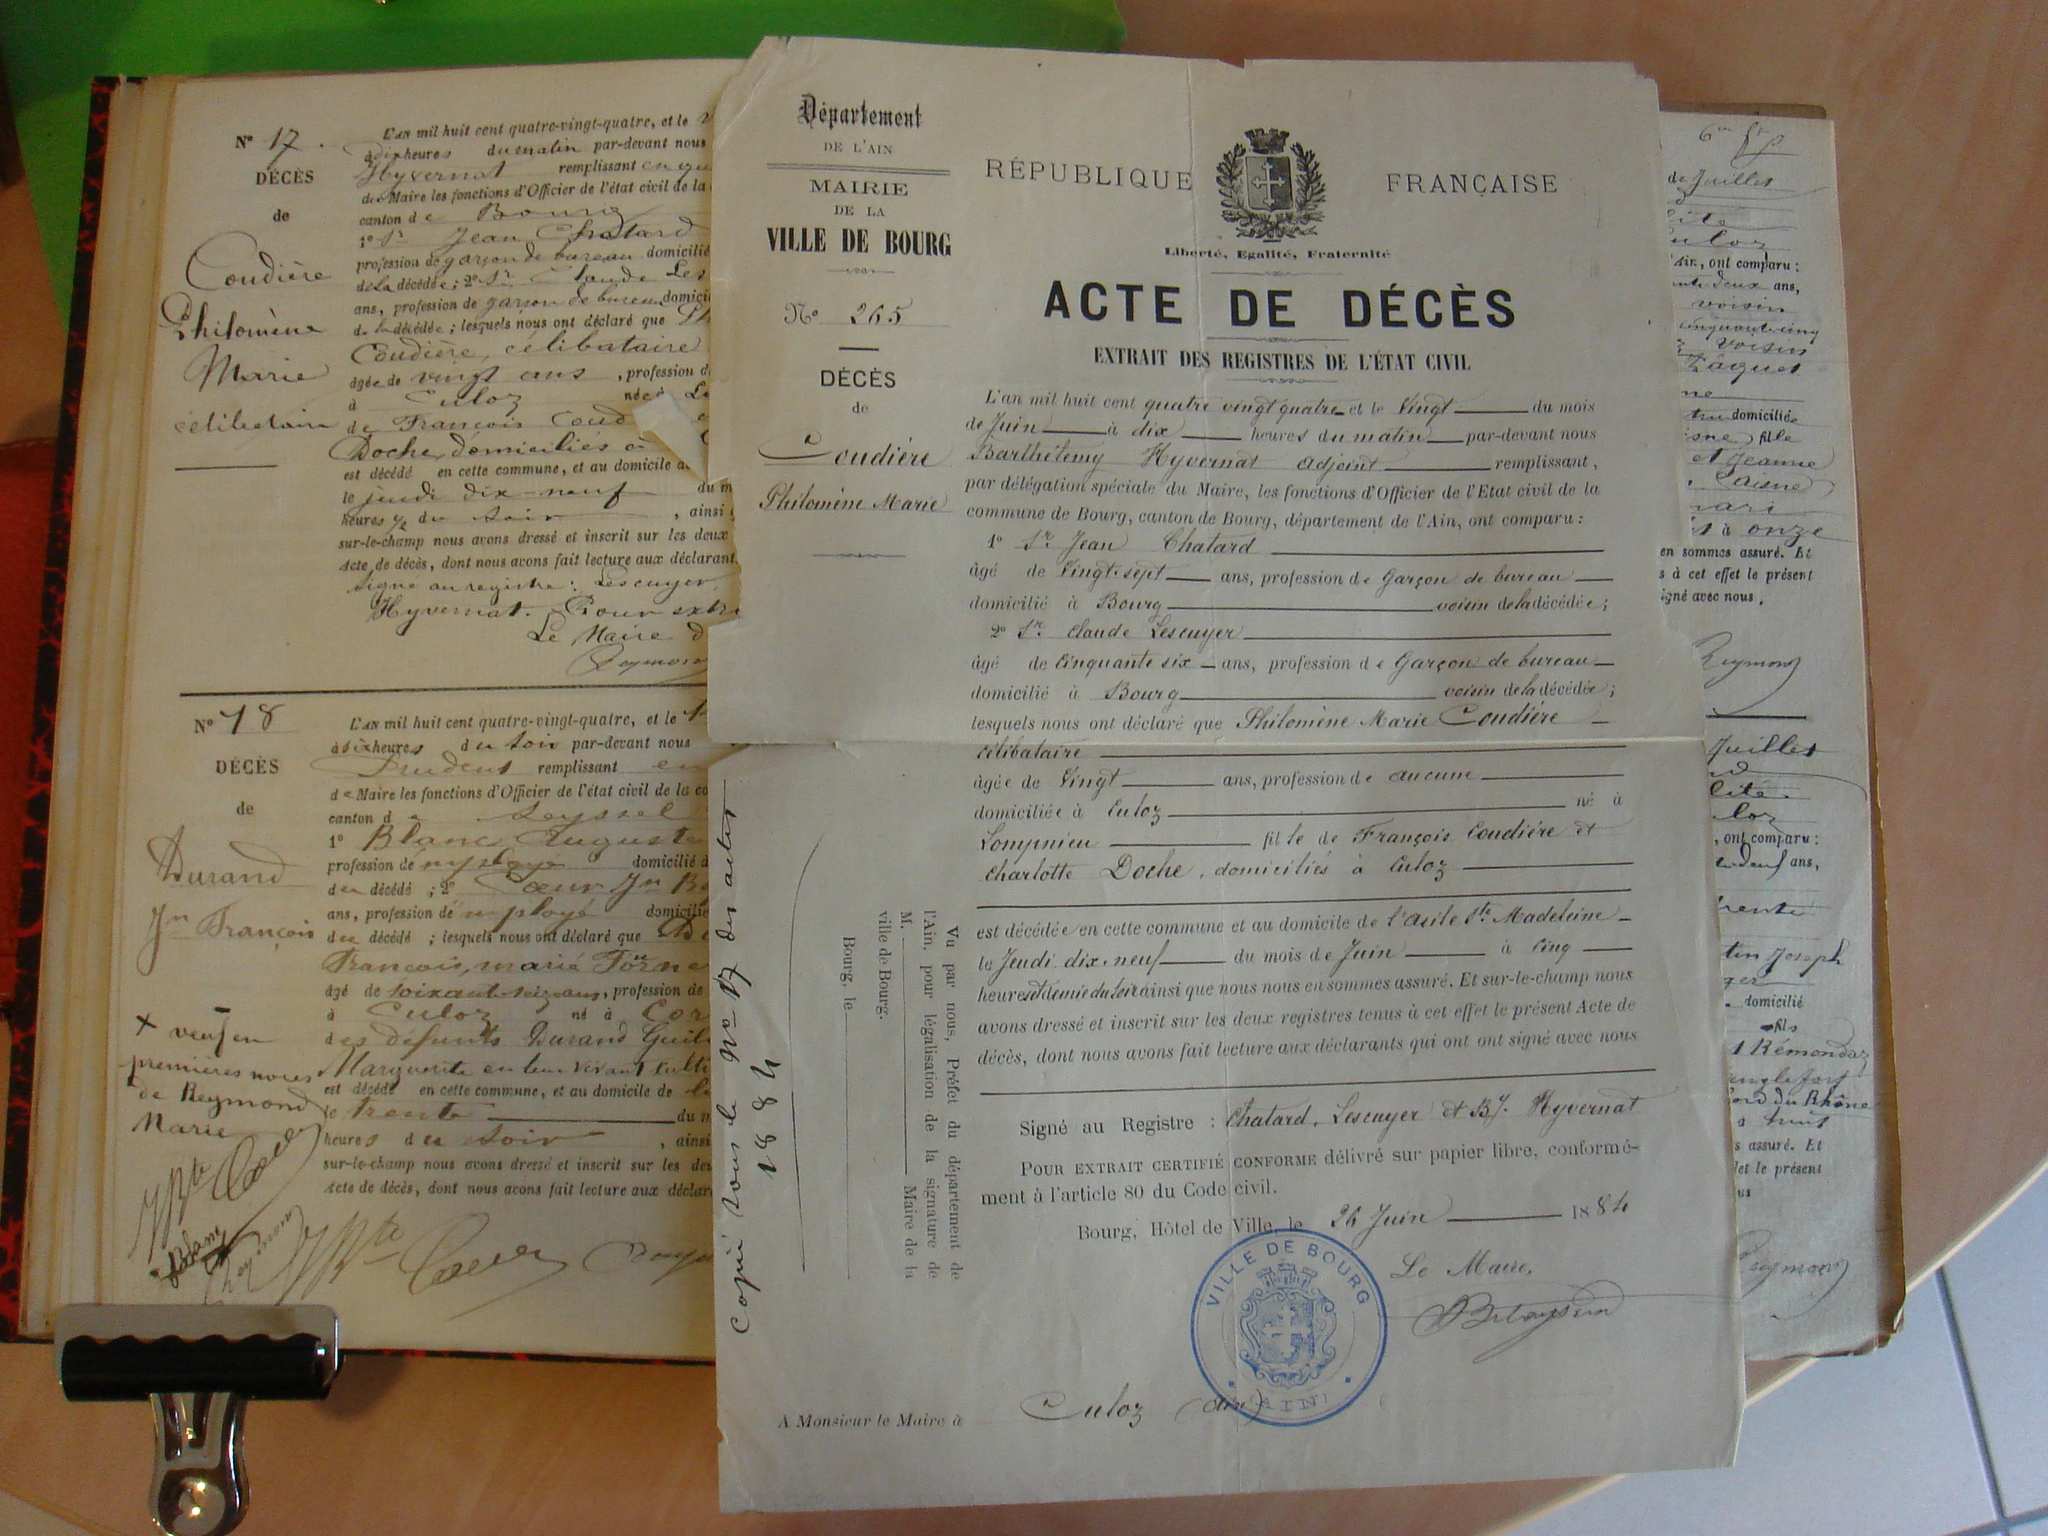 Nº 17.
DÉCÈS
de
Coudière
Philomène
Marie
célibataire
L'AN mil huit cent quatre-vingt-quatre, et le
à dix heures du matin par-devant nous
Hyvernat remplissant en
de Maire les fonctions d'Officier de l'état civil de la
canton de Bourg
1º Sr Jean Chatard
profession de garçon de bureau domicilié
de la décédée; 2º Sr Claude Les
ans, profession de garçon de bureau domici
de la décédée; lesquels nous ont déclaré que
Coudière, célibataire
âgée de vingt ans, profession
à Culoz née à
de François Coud
Doche, domiciliés à
est décédé en cette commune, et au domicile
le jeudi dix-neuf du m
heures ½ du soir, ainsi
sur-le-champ nous avons dressé et inscrit sur les deux
Acte de décès, dont nous avons fait lecture aux déclarant
signé au registre: Lescuyer
Hyvernat. Pour extr
Le Maire
Nº 18
DÉCÈS
de
Durand
Jn François
+ veuf en
premières noces
de Reymond
Marie
L'AN mil huit cent quatre-vingt-quatre, et le
à six heures du soir par-devant nous
Prudent remplissant en
de Maire les fonctions d'Officier de l'état civil de la co
canton de Seyssel
1º Blanc Auguste
profession de employé domicilié à
du décédé; 2º Cœur Jn B
ans, profession d'employé domicilié
du décédé; lesquels nous ont déclaré que
François, marié
âgé de soixante seize ans, profession de
à Culoz né à
des défunts Durand
Marguerite en leur vivant
est décédé en cette commune, et au domicile de
le trente du m
heures du soir, ainsi
sur-le-champ nous avons dressé et inscrit sur les de
Acte de décès, dont nous avons fait lecture aux déclar
Département
DE L'AIN
MAIRIE
DE LA
VILLE DE BOURG
Nº 265
DÉCÈS
de
Coudière
Philomène Marie
RÉPUBLIQUE FRANÇAISE
Liberté, Egalité, Fraternité
ACTE DE DÉCÈS
EXTRAIT DES REGISTRES DE L'ÉTAT CIVIL
L'an mil huit cent quatre vingt quatre et le Vingt du mois
de Juin à dix heures du matin par-devant nous
Barthélemy Hyvernat adjoint remplissant,
par délégation spéciale du Maire, les fonctions d'Officier de l'Etat civil de la
commune de Bourg, canton de Bourg, département de l'Ain, ont comparu:
1º Sr. Jean Chatard
âgé de Vingt-sept ans, profession de Garçon de bureau
domicilié à Bourg voisin de la décédée;
2º Sr. Claude Lescuyer
âgé de Cinquante six ans, profession de Garçon de bureau
domicilié à Bourg voisin de la décédée;
lesquels nous ont déclaré que Philomène Marie Coudière
célibataire
âgée de Vingt ans, profession de aucune
domiciliée à Culoz né à
Lompnieu fille de François Coudière et
Charlotte Doche, domiciliés à Culoz
est décédée en cette commune et au domicile de l'asile Ste Madeleine
le Jeudi dix-neuf du mois de Juin à Cinq
heures et demie du soir ainsi que nous nous en sommes assuré. Et sur-le-champ nous
avons dressé et inscrit sur les deux registres tenus à cet effet le présent Acte de
décès, dont nous avons fait lecture aux déclarants qui ont ont signé avec nous
Signé au Registre: Chatard, Lescuyer et By. Hyvernat
POUR EXTRAIT CERTIFIÉ CONFORME délivré sur papier libre, conformé-
ment à l'article 80 du Code civil.
Bourg, Hôtel de Ville, le 26 Juin 1884
Le Maire,
VILLE DE BOURG
(AIN)
A Monsieur le Maire à Culoz (Ain)
Copié sous le Nº 17 des actes
1884
Vu par nous, Préfet du département de
l'Ain, pour légalisation de la signature de
M. Maire de la
ville de Bourg.
Bourg, le
de Juillet
ont comparu:
ans,
voisin
cinquante cinq
voisin
domicilié
fille
et Jeanne
à onze
en sommes assuré. Et
s à cet effet le présent
igné avec nous.
Reymond
Juillet
, ont comparu:
ans,
trente
Joseph
domicilié
fils
ord du Rhône
s assuré. Et
et le présent
us